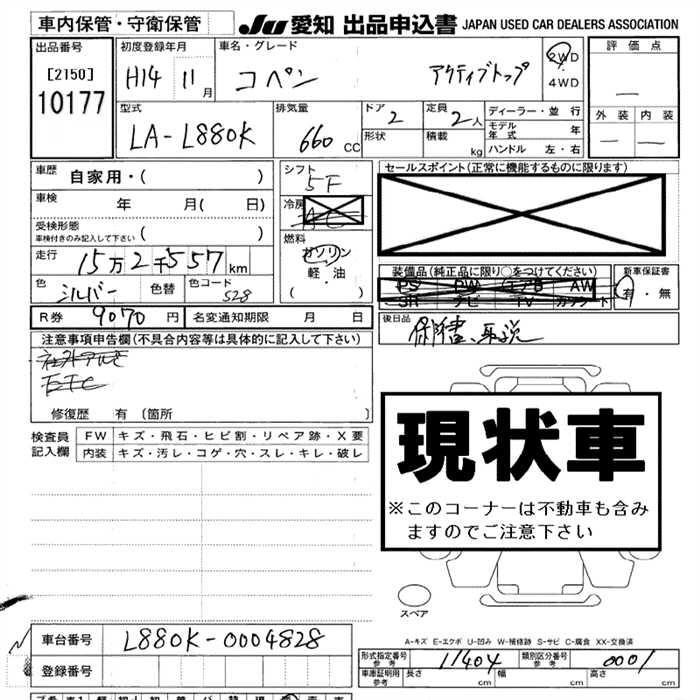 車内保管・守衛保管 JU 愛知 出品申込書 JAPAN USED CAR DEALERS ASSOCIATION
出品番号 初度登録年月 車名・グレード 評価点
[2150] H14 11月 コペン アクティブトップ 2WD・4WD —
10177
型式 排気量 ドア 定員 ディーラー・並行 外装 内装
LA-L880K 660 CC 2 2人 モデル年式 年 — —
形状 積載 kg ハンドル 左・右
車歴 自家用・( ) シフト 5F セールスポイント(正常に機能するものに限ります)
車検 年 月( 日) 冷房 AC
受検形態
車検付きのみ記入して下さい ( ) 燃料 ガソリン
走行 15万2千557km 軽・油 装備品(純正品に限り○をつけてください) 新車保証書
色 シルバー 色替 色コード S28 ( ) PS PW エアB AW 有・無
SR ナビ TV カワシート
R券 9070円 名変通知期限 月 日 後日品
注意事項申告欄(不具合内容等は具体的に記入して下さい) 保証書、取説
社外アルミ
ETC
修復歴 有 〔箇所 〕
検査員記入欄 FW キズ・飛石・ヒビ割・リペア跡・X要
内装 キズ・汚レ・コゲ・穴・スレ・キレ・破レ
現状車
※このコーナーは不動車も含み
ますのでご注意下さい
スペア
A-キズ E-エクボ U-凹み W-補修跡 S-サビ C-腐食 XX-交換済
車台番号 L880K-0004828
形式指定番号 参考 11404 類別区分番号 参考 0001
登録番号 車庫証明用 参考 長さ 幅 高さ